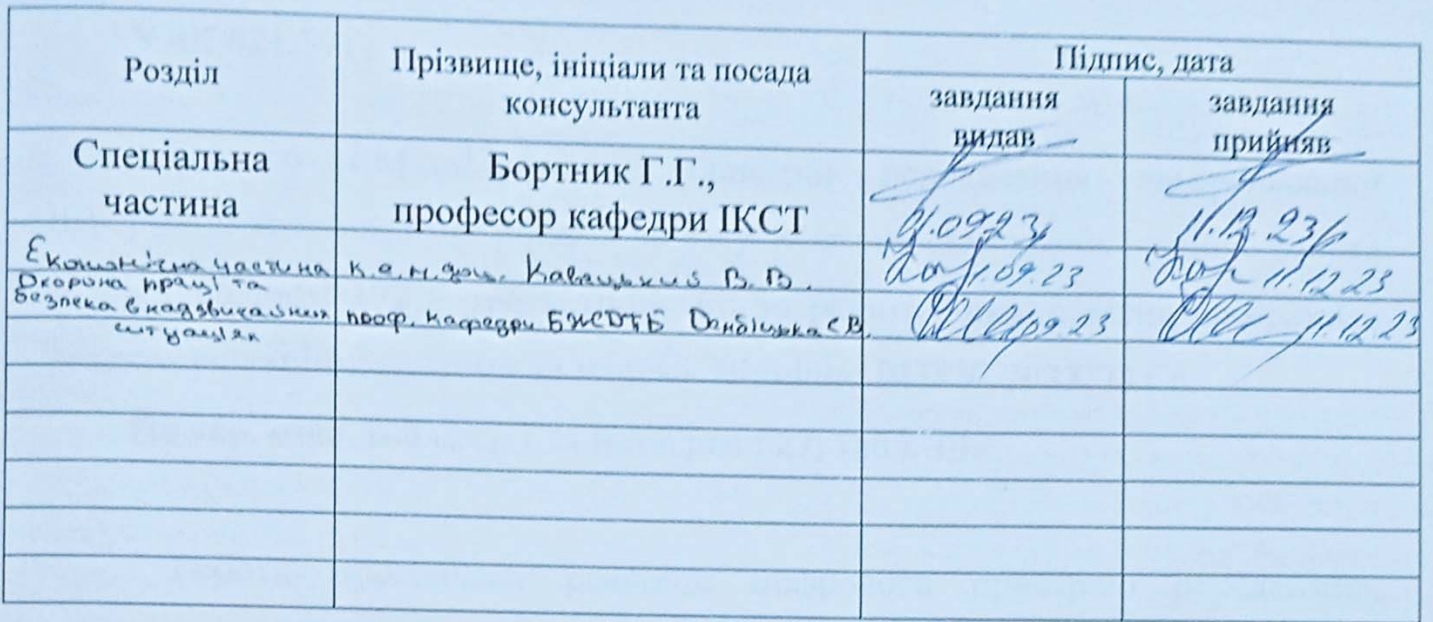 Розділ
Прізвище, ініціали та посада
консультанта
Підпис, дата
завдання
видав
завдання
прийняв
Спеціальна
частина
Бортник Г.Г.,
професор кафедри ІКСТ
01.09.23р
11.12.23р
Економічна частина
к.е.н. доц. Кавецький В. В.
1.09.23
11.12.23
Охорона праці та
безпека в надзвичайних
ситуаціях
проф. кафедри БЖДПБ Дембіцька С.В.
09.23
11.12.23